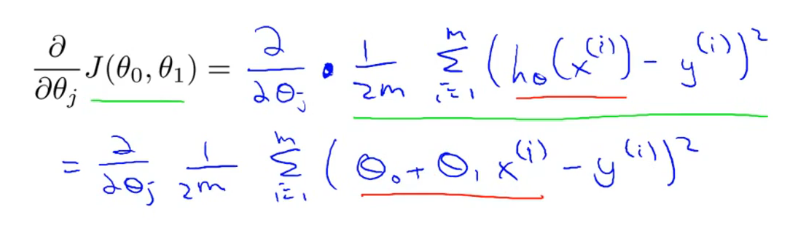 ∂/∂θⱼ J(θ₀, θ₁) = ∂/∂θⱼ · 1/2m ∑ᵢ₌₁ᵐ (h_θ(x⁽ⁱ⁾) − y⁽ⁱ⁾)²
= ∂/∂θⱼ 1/2m ∑ᵢ₌₁ᵐ (θ₀ + θ₁ x⁽ⁱ⁾ − y⁽ⁱ⁾)²